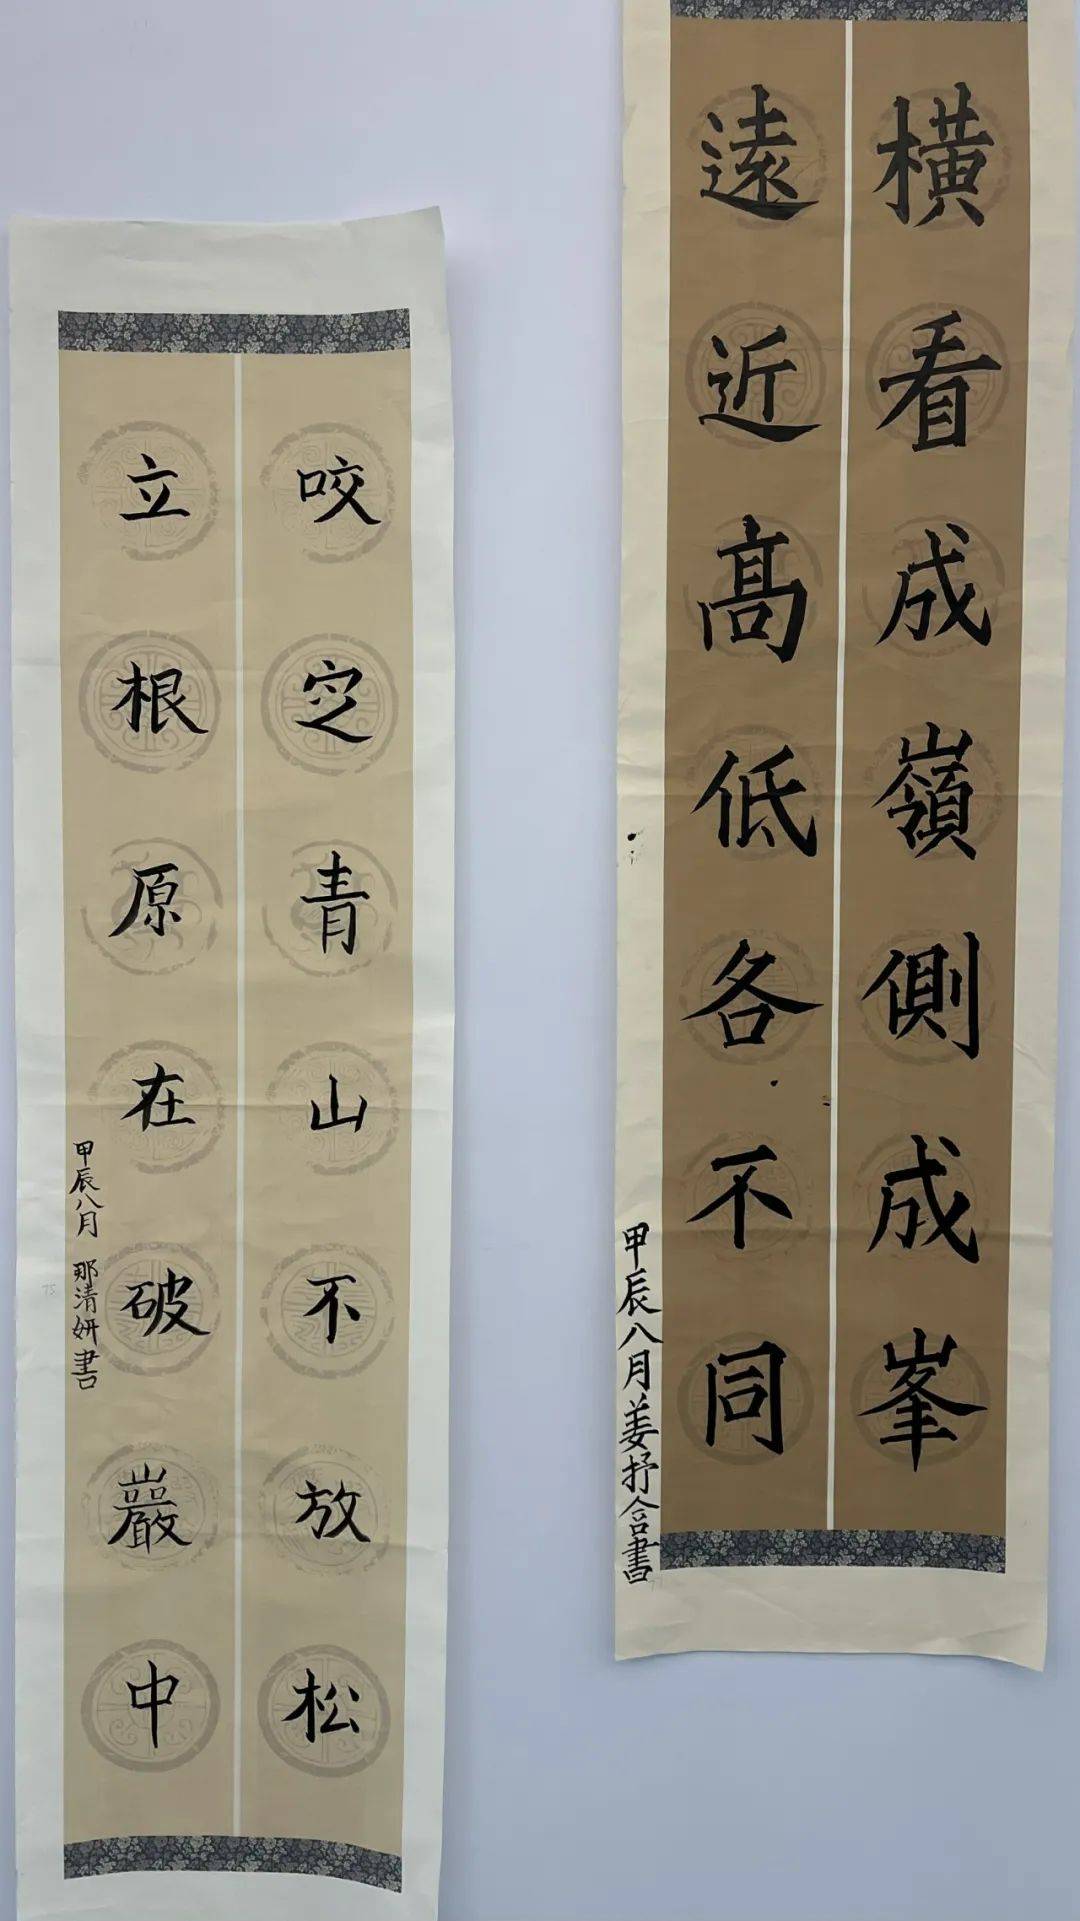 横看成嶺側成峯
遠近髙低各不同
甲辰八月姜抒含書
咬㝎青山不放松
立根原在破巖中
甲辰八月 那清妍書